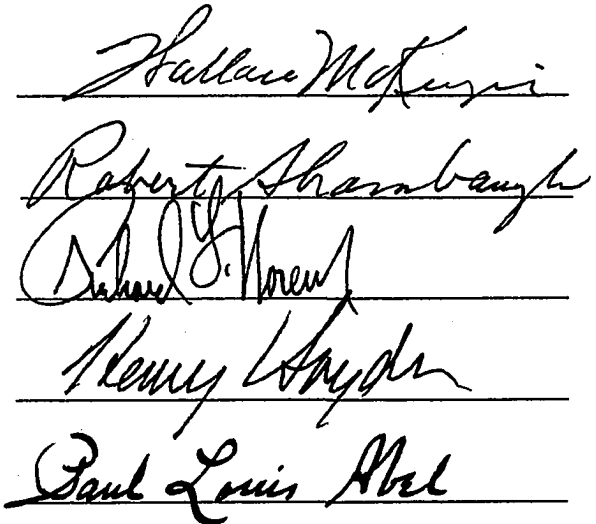 Wallace McKenzie
Robert Shambaugh
Richard G. Norem
Henry Snyder
Paul Louis Abel